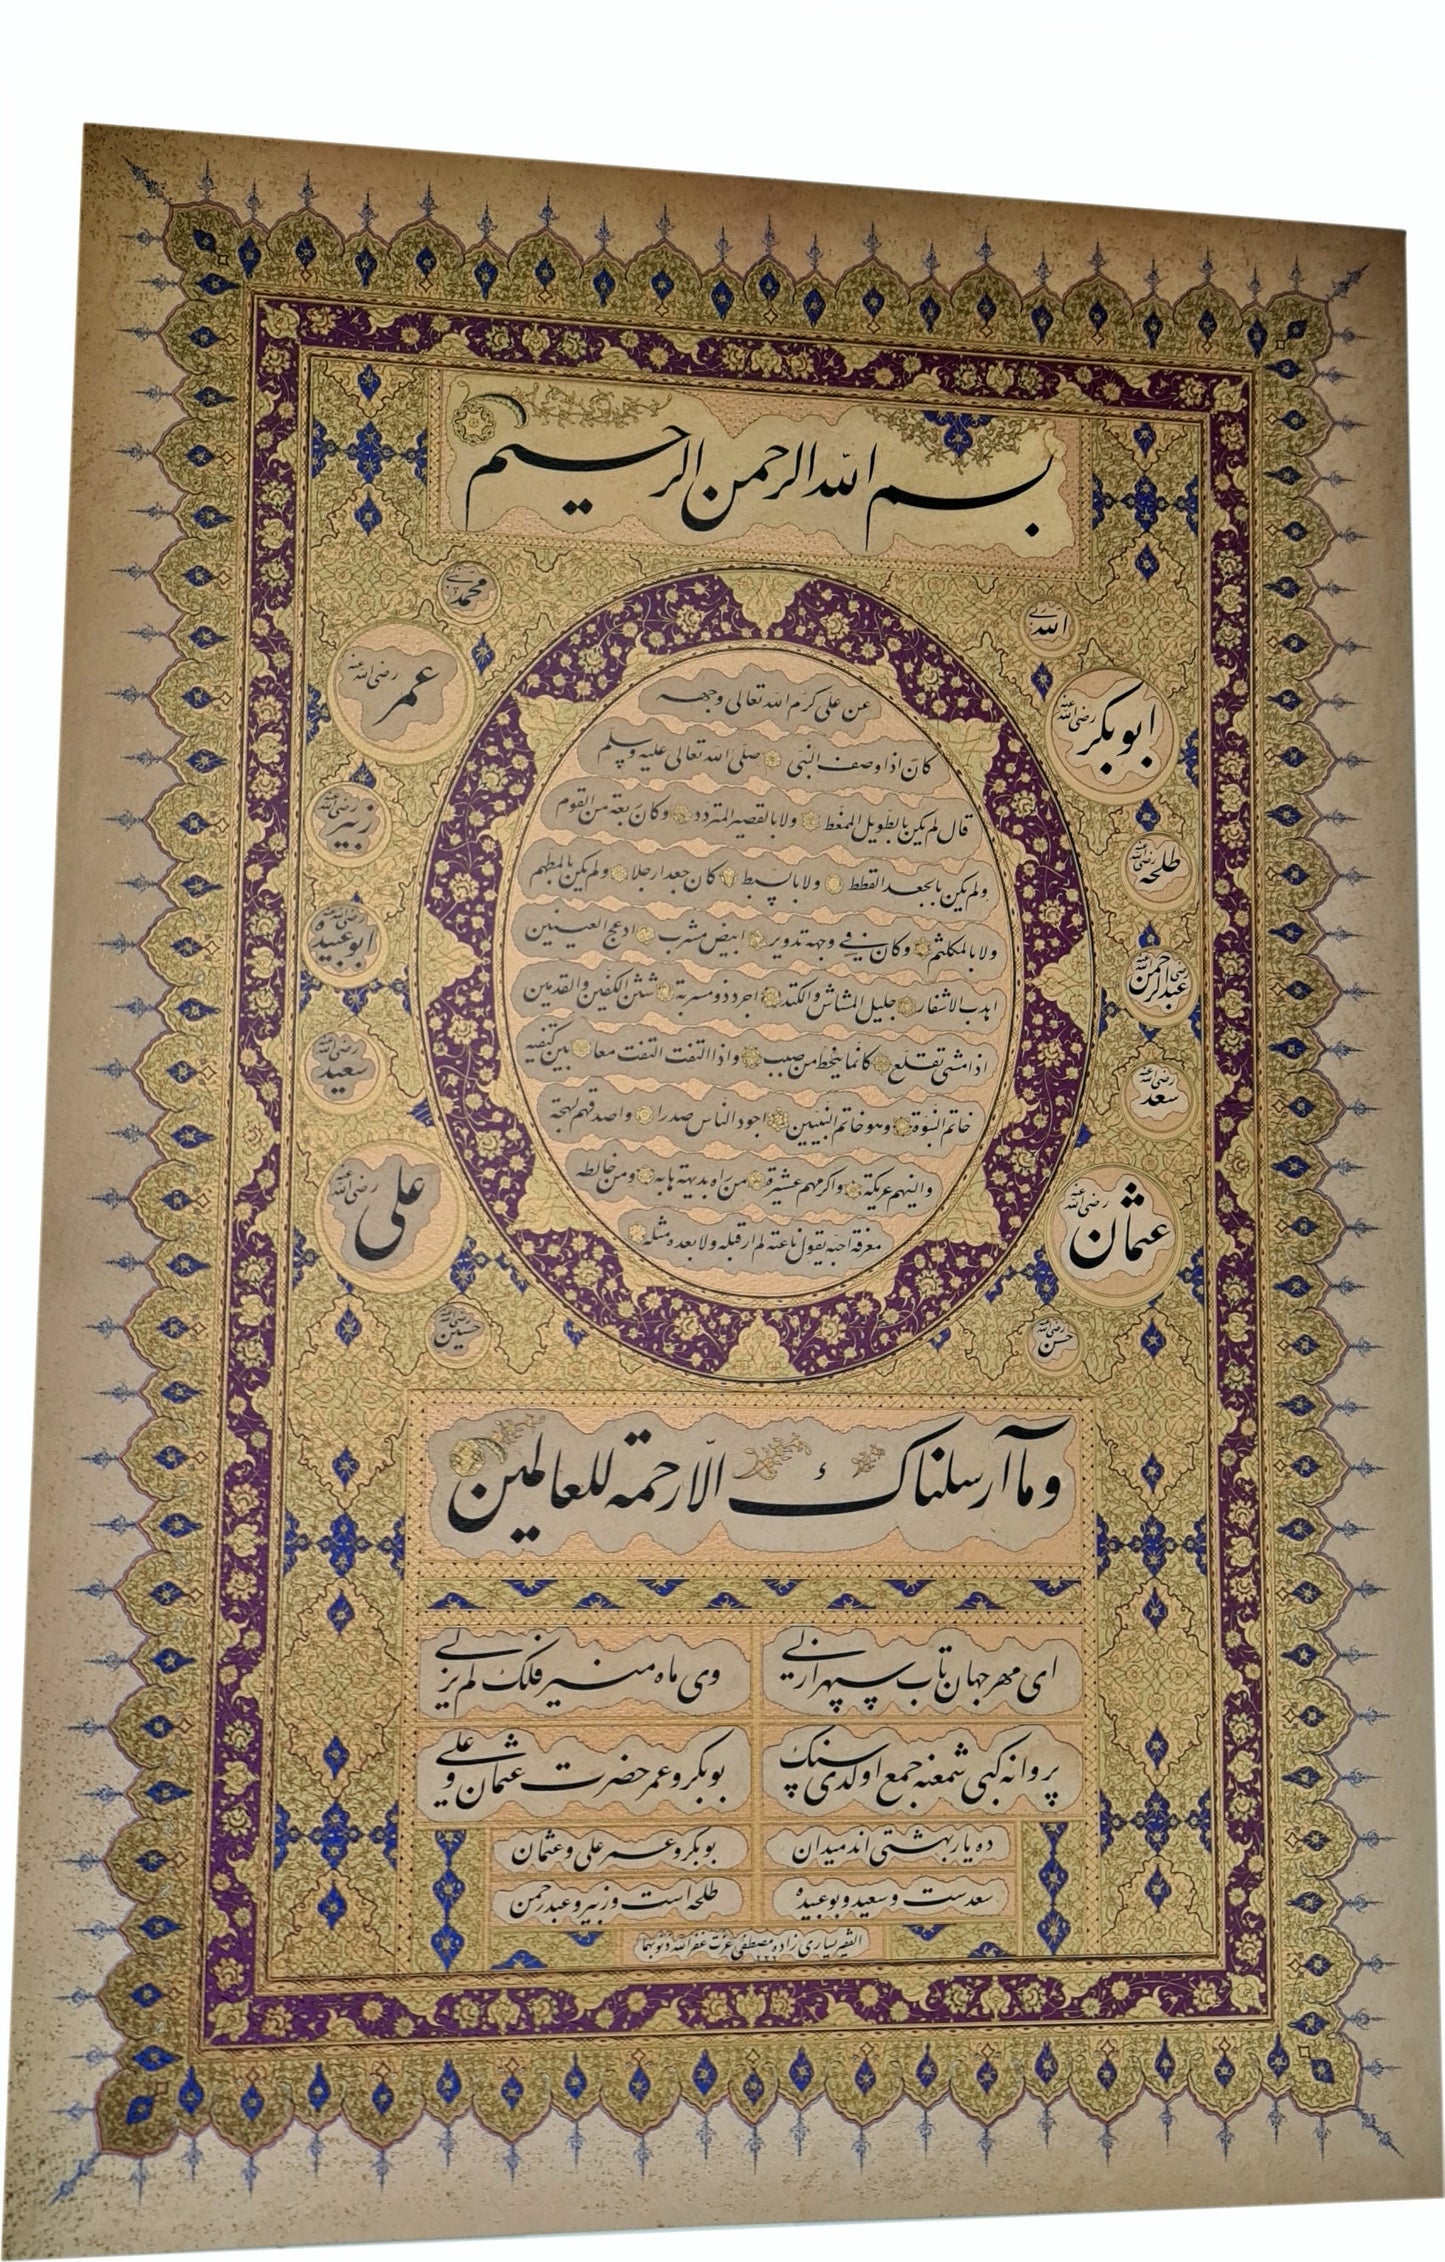 بسم الله الرحمن الرحيم
الله
محمد
ابوبكر رضى الله عنه
عمر رضى الله عنه
طلحه رضى الله عنه
زبير رضى الله عنه
عبد الرحمن رضى الله عنه
ابو عبيده رضى الله عنه
سعد رضى الله عنه
سعيد رضى الله عنه
عثمان رضى الله عنه
على رضى الله عنه
حسن رضى الله عنه
حسين رضى الله عنه
عن على كرم الله تعالى وجهه
كان اذا وصف النبى صلى الله تعالى عليه وسلم
قال لم يكن بالطويل الممغط ولا بالقصير المتردد وكان ربعة من القوم
ولم يكن بالجعد القطط ولا بالسبط كان جعدا رجلا ولم يكن بالمطهم
ولا بالمكلثم وكان فى وجهه تدوير ابيض مشرب ادعج العينين
اهدب الاشفار جليل المشاش والكتد اجرد ذو مسربة شثن الكفين والقدمين
اذا مشى تقلع كانما ينحط من صبب واذا التفت التفت معا بين كتفيه
خاتم النبوة وهو خاتم النبيين اجود الناس صدرا واصدقهم لهجة
والينهم عريكة واكرمهم عشيرة من راه بديهة هابه ومن خالطه
معرفة احبه يقول ناعته لم ار قبله ولا بعده مثله
وما آرسلناك الا رحمة للعالمين
اى مهر جهان تاب سپهر ازلى
وى ماه منير فلك لم يزلى
پروانه كبى شمعنه جمع اولدى سنك
بوبكر وعمر حضرت عثمان وعلى
ده يار بهشتى اند ميدان
بوبكر وعمر على وعثمان
سعدست وسعيد وبوعبيده
طلحه است وزبير وعبدرحمن
الفقير يسارى زاده مصطفى عزت غفر الله ذنوبهما